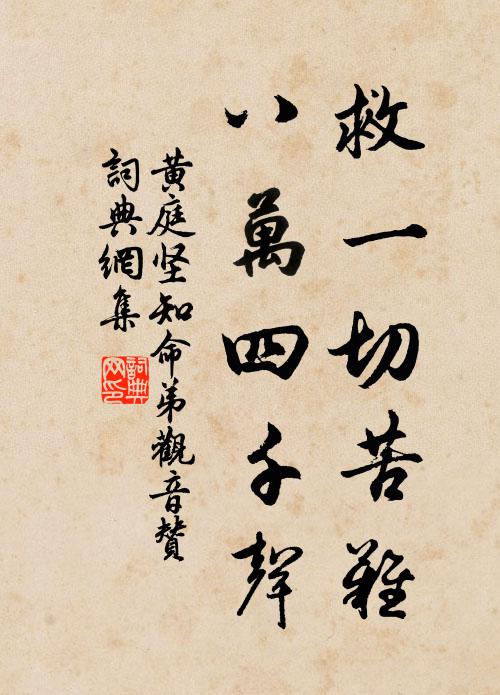 救一切苦難
八萬四千聲
黃庭坚知命弟觀音賛
詞典網集
詞典网印